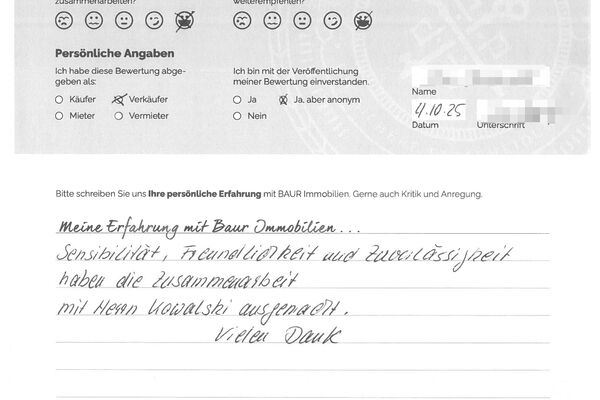 zusammenarbeiten? weiterempfehlen?
Persönliche Angaben
Ich habe diese Bewertung abge-
geben als:
Käufer Verkäufer
Mieter Vermieter
Ich bin mit der Veröffentlichung
meiner Bewertung einverstanden.
Ja Ja, aber anonym
Nein
Name
4.10.25
Datum Unterschrift
Bitte schreiben Sie uns Ihre persönliche Erfahrung mit BAUR Immobilien. Gerne auch Kritik und Anregung.
Meine Erfahrung mit Baur Immobilien...
Sensibilität, Freundlichkeit und Zuverlässigkeit
haben die Zusammenarbeit
mit Herrn Kowalski ausgemacht.
Vielen Dank